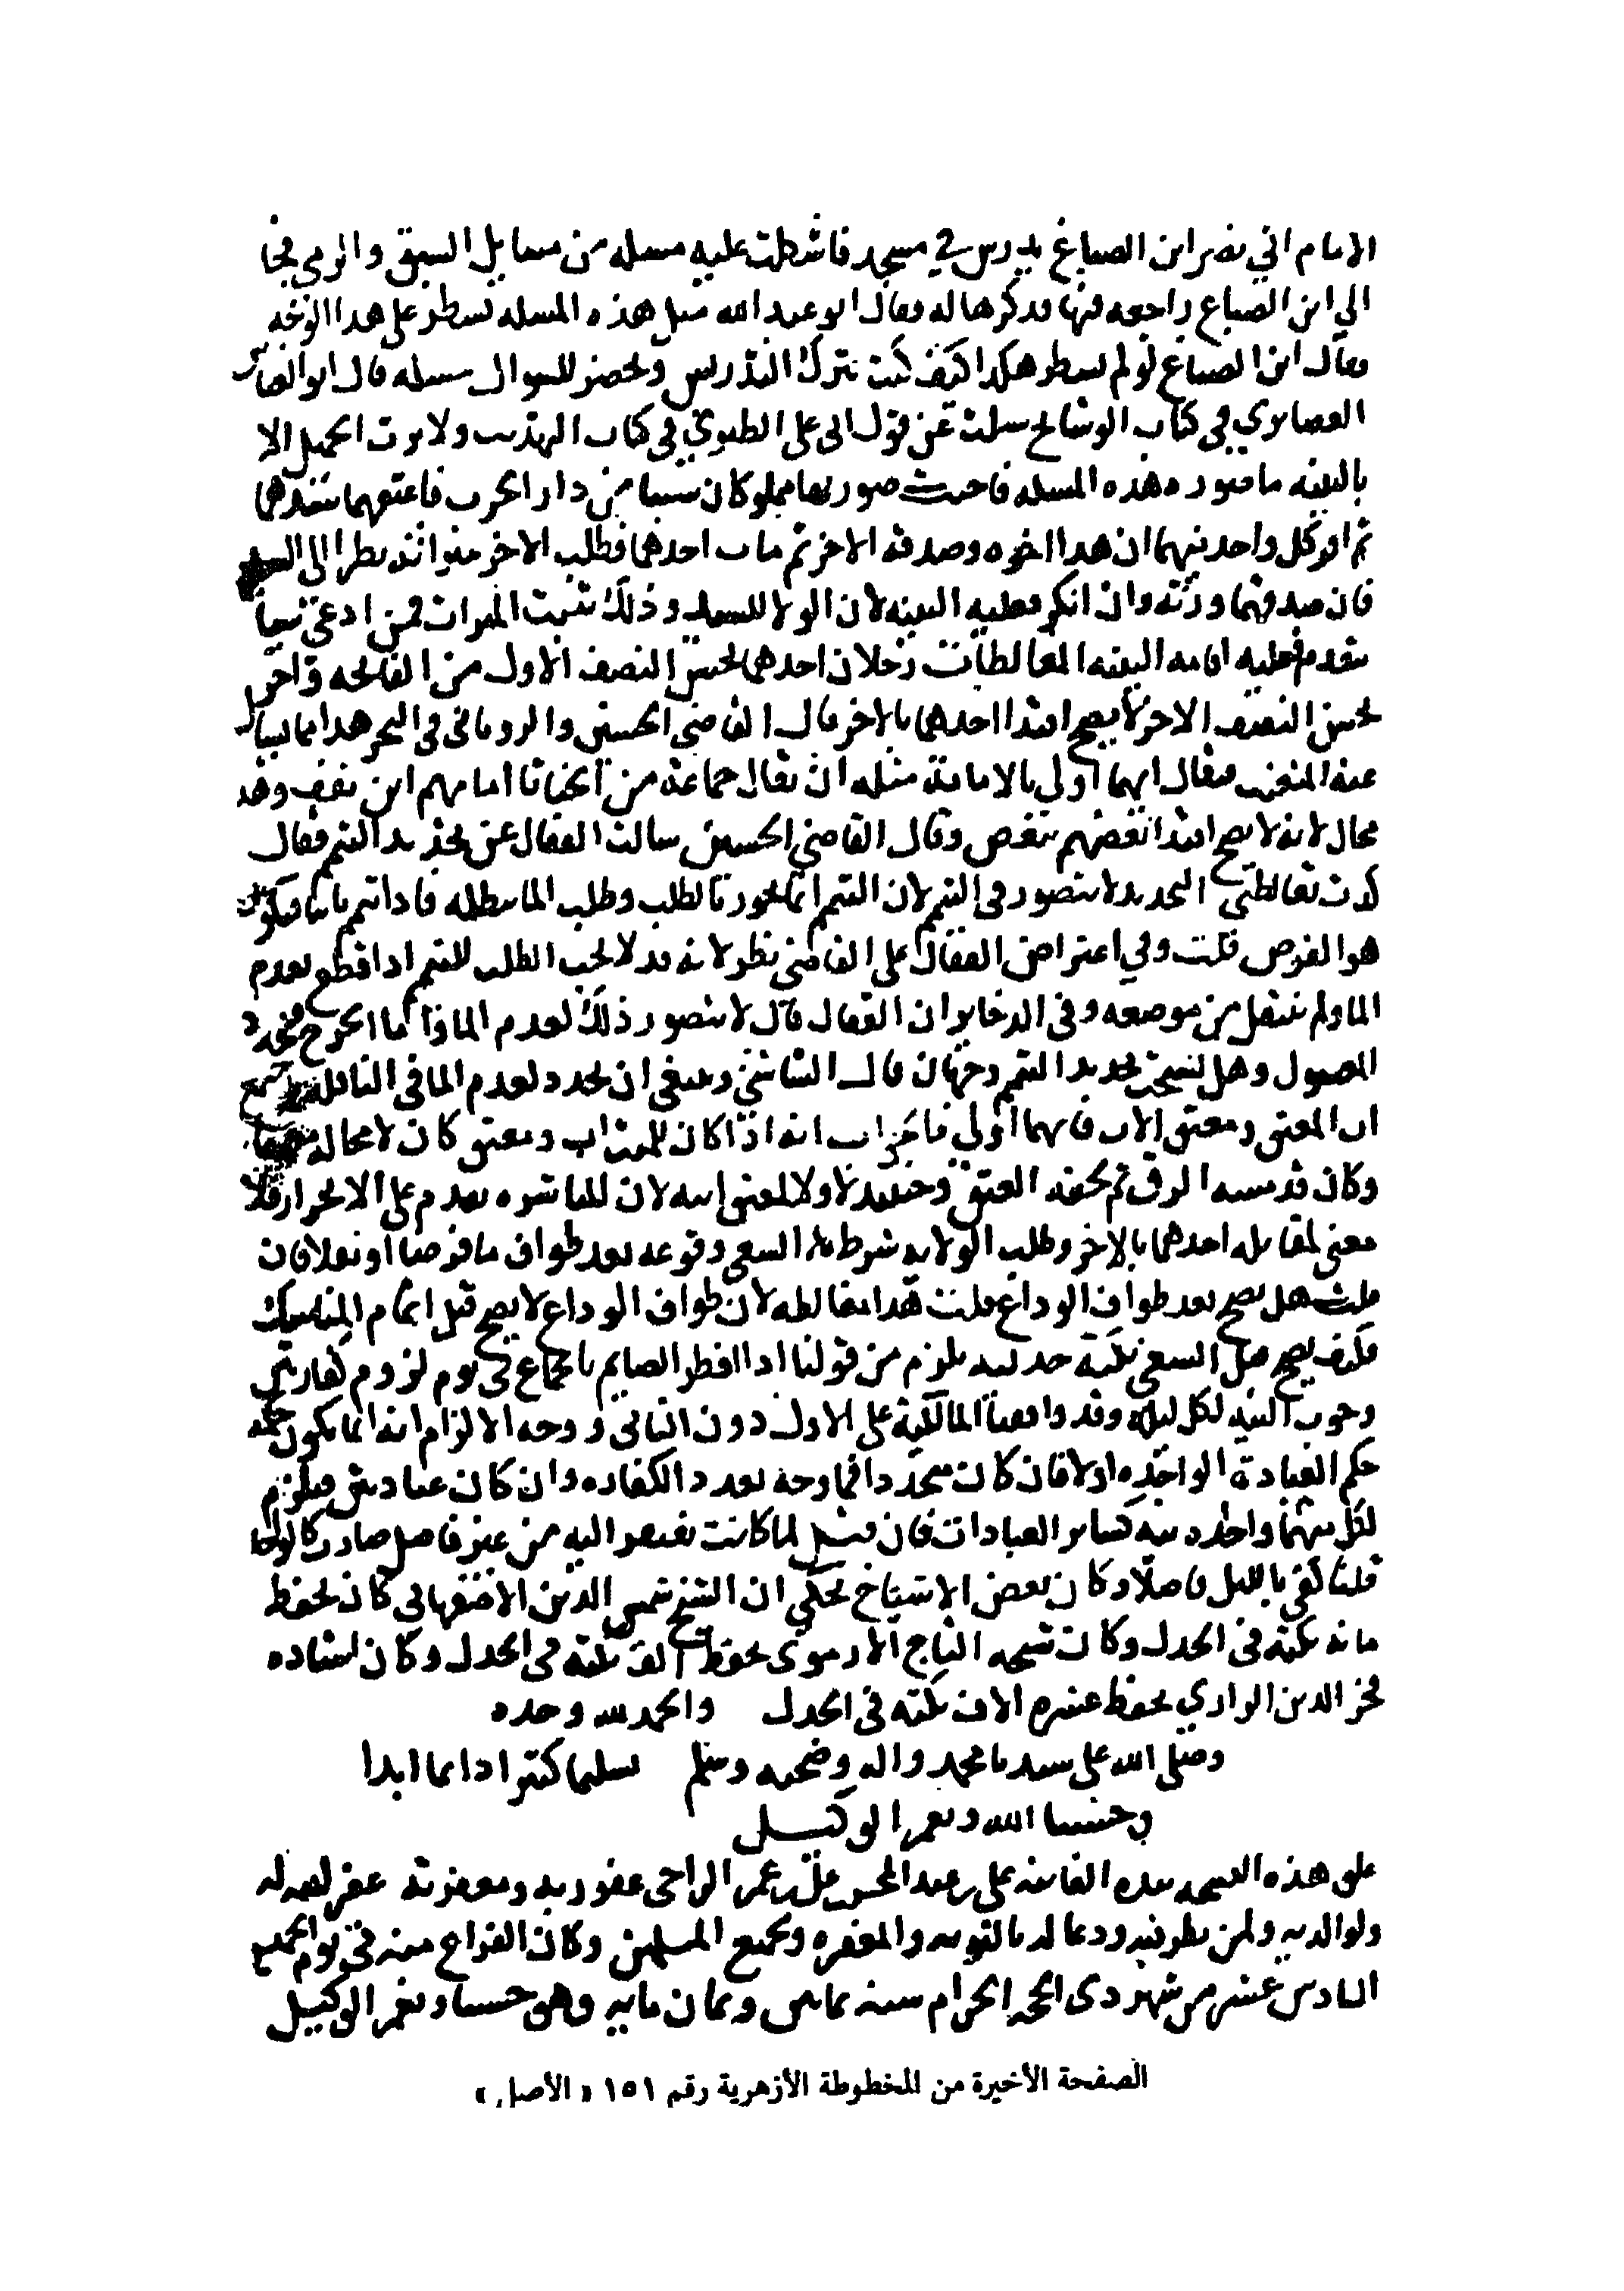 الامام ابي نصر ابن الصباغ يدرس في مسجد فاشكلت عليه مسله من مسايل السبق والرمي فجا
الي ابن الصباغ راجعه فيها فذكرها له فقال ابو عبد الله مثل هذه المسله تسطر على هذا الوجه
فقال ابن الصباغ لو لم تسطر هكذا كيف كنت تترك التدريس وتحضر للسوال مسله قال ابو
في كتاب الوشاح سيلت عن قول ابي على الطبري في كتاب ولا يرث الحميل الا
بالبينه ما صوره هذه المسله فاجبت صورتها مملوكان سبيا من دار الحرب فاعتقهما سيدهما
ثم اقر كل واحد منهما ان هذا اخوه وصدقه الاخر ثم مات احدهما فطلب الاخر ميراثه نظر الى السيد
فان صدقهما ورثه وان انكر فعليه البينه لان الولا للسيد وذلك يثبت الميراث فمن ادعى نسبا
يتقدم فعليه اقامه البينه المغالطات رجلان احدهما يحسن النصف الاول من الفاتحه واخر
يحسن النصف الاخر لا يصح اقتدا احدهما بالاخر قال القاضي الحسين والروياني في البحر هذا مما يسال
عنه فيقال ايهما اولي بالامامة مثله ان يقال جماعة من الخناثا امامهم ابن نقف وهذ
محال لانه لا يصح اقتدا بعضهم ببعض وقال القاضي الحسين سالت القفال عن تجديد التيمم فقال
كدت تغالطني التجديد لا يتصور في التيمم لان التيمم انما يجوز بالطلب وطلب الما يبطله فاذا تيمم ثانيا فيكون
هو الفرض قلت وفي اعتراض القفال على القاضي نظر لانه قد لا يجب الطلب للتيمم اذا قطع بعدم
الما ولم ينتقل من موضعه وفي الذخاير ان القفال قال لا يتصور ذلك لعدم الما فاما الجرح
وهل يستحب تجديد التيمم وجهان قال الشاشي وينبغي ان يجدد لعدم الما في النافله
اب المعتق ومعتق الاب فايهما اولي فاجواب انه اذا كان للميت اب ومعتق كان لا محاله
وكان قد مسه الرق ثم لحقه العتق وحينيذ لا ولا لمعتق ابيه لان للمباشره تقدم على الانجرار فلا
معنى لمقابله احدهما بالاخر وطلب الولايه شرط السعي وقوعه بعد طواف ما فرضا او نفلا فان
قلت هل يصح بعد طواف الوداع قلت هذا مغالطه لان طواف الوداع لا يصح قبل اتمام المناسك
فكيف يصح قبل السعي نكتة جدليه يلزم من قولنا اذا افطر الصايم بالجماع في يوم لزوم كفارتين
وجوب النيه لكل ليله وقد وافقنا المالكية على الاول دون الثاني ووجه الالزام انه انما يكون حكمه
حكم العبادة الواحده او لا فان كان متحدا فما وجه تعدد الكفاره وان كان عبادتين فيلزم
لكل منهما واحده نيه كساير العبادات فان قيل لما كانت تفتقر اليه من غير فاصل صارت كالواحد
قلنا كفى بالليل فاصلا وكان بعض الاشياخ يحكي ان الشيخ شمس الدين الاصفهاني كان يحفظ
مائه نكتة في الجدل وكان شيخه التاج الارموي يحفظ الف نكتة في الجدل وكان استاده
فخر الدين الرازي يحفظ عشره الاف نكته في الجدل والحمد لله وحده
وصلى الله على سيدنا محمد واله وصحبه وسلم تسليما كثيرا دايما ابدا
وحسبنا الله ونعم الوكيل
علق هذه النسخه بيده الفانيه علي بن عبد المحسن بن عمر الراجي عفو ربه ومغفرته غفر الله له
ولوالديه ولمن نظر فيه ودعا له بالتوبه والمغفره ولجميع المسلمين وكان الفراغ منه في يوم
السادس عشر من شهر ذي الحجه الحرام سنه وثمان مايه وهو حسبنا ونعم الوكيل
الصفحة الأخيرة من المخطوطة الأزهرية رقم ١٥١ « الأصل »